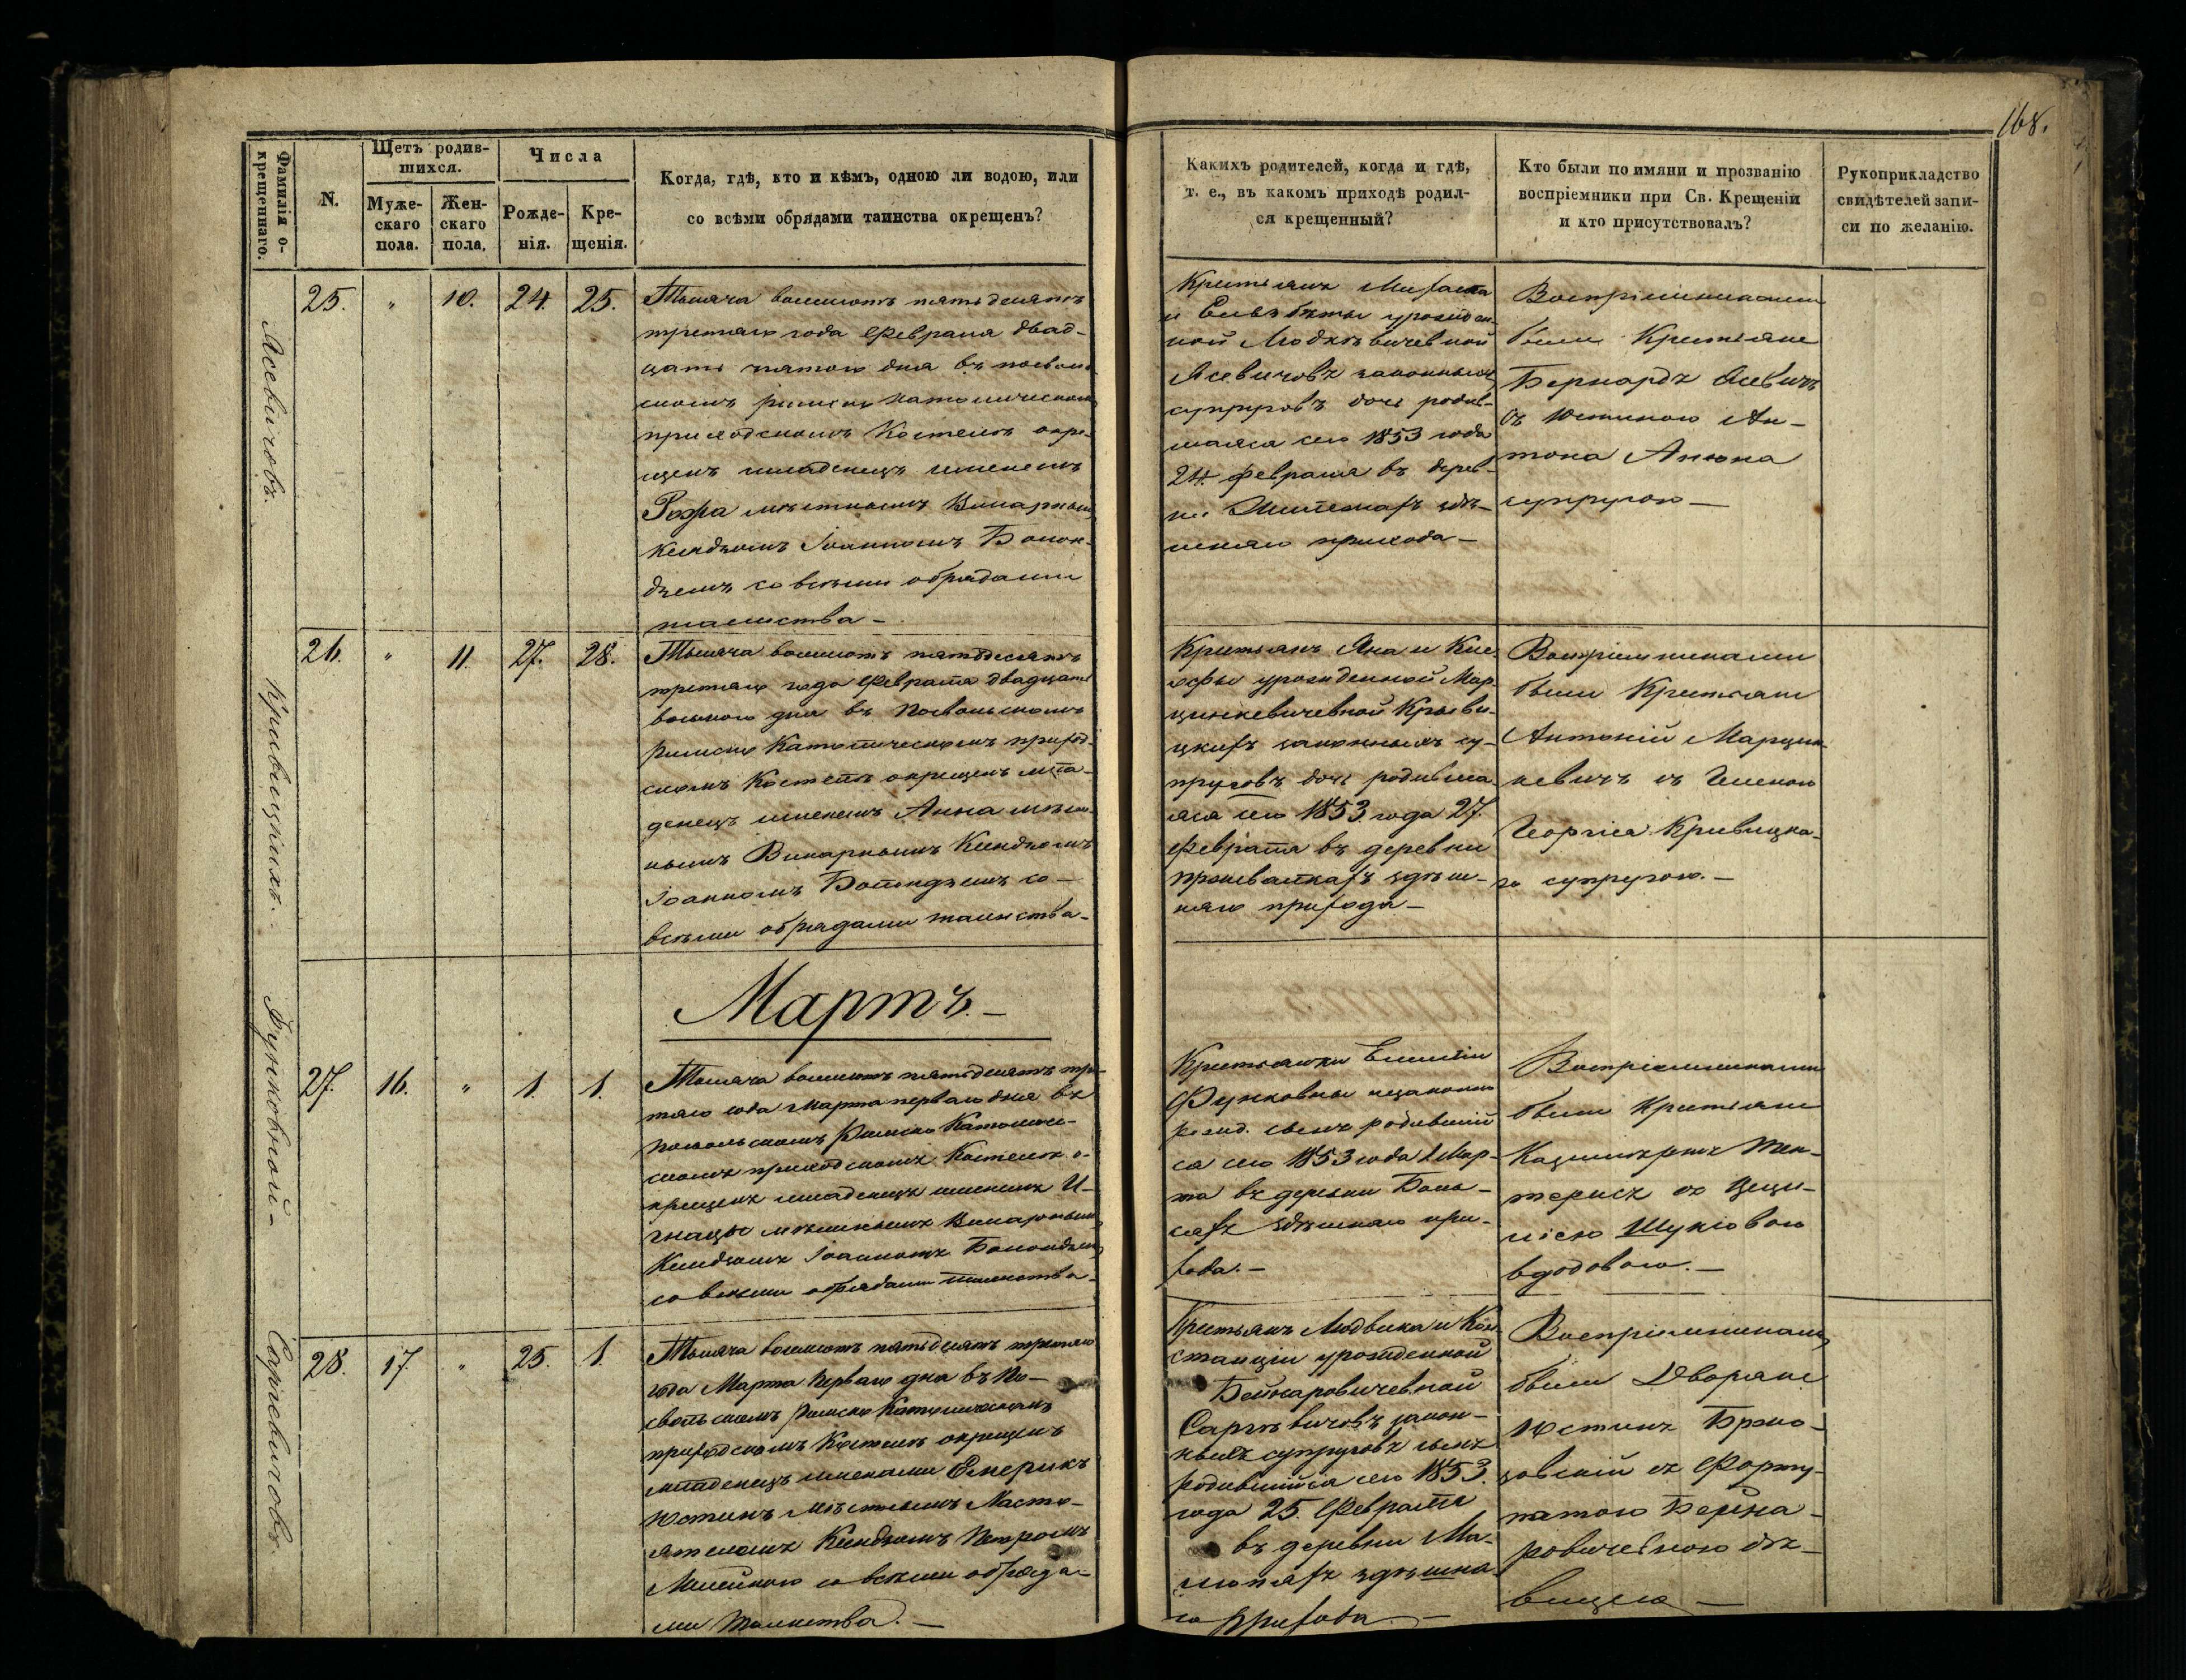 168.
Фамилія о-
крещеннаго.
N.
Щетъ родив-
шихся.
Муже-
скаго
пола.
Жен-
скаго
пола.
Числа
Рожде-
нія.
Кре-
щенія.
Когда, гдѣ, кто и кѣмъ, одною ли водою, или
со всѣми обрядами таинства окрещенъ?
Какихъ родителей, когда и гдѣ,
т. е., въ какомъ приходѣ родил-
ся крещенный?
Кто были по имяни и прозванію
воспріемники при Св. Крещеніи
и кто присутствовалъ?
Рукоприкладство
свидѣтелей запи-
си по желанію.
Ясевичовъ.
25.
"
10.
24.
25.
Тысяча восемсотъ пятьдесятъ
третяго года Февраля двад-
цать пятого дня въ посволь-
скомъ римско католическомъ
приходскомъ Костелѣ окре-
щенъ младенецъ именемъ
мѣстнымъ Викарнымъ
Ксендзомъ Іоанномъ
со всѣми обрядами
таинства –
Крестьянъ
и Ельзбѣты урожден-
ной
Ясевичовъ законныхъ
супруговъ дочь родив-
шаяся сего 1853 года
24 февраля въ дерев-
ни здѣ-
шняго прихода –
Воспріемниками
были Крестьяне
Бернардъ Ясевичъ
съ Юстиною Ан-
тона
супругою –
Кривицкихъ.
26.
"
11.
27.
28.
Тысяча восемсотъ пятьдесятъ
третяго года Февраля двадцать
восьмого дня въ Посвольскомъ
римско Католическомъ приход-
скомъ Костелѣ окрещенъ мла-
денецъ именемъ Анна мѣст-
нымъ Викарнымъ Ксендзомъ
Іоанномъ со –
всѣми обрядами таинства –
Крестьянъ Яна и
урожденной Мар-
цинкевичевной Криви-
цкихъ законныхъ су-
пруговъ дочь родивша-
яся сего 1853 года 27.
Февраля въ деревни
здѣш-
няго прихода –
Воспріемниками
были Крестьяне
Антоній Марцин-
кевичъ съ
Георгія Кривицка-
го супругою. –
Мартъ. –
Функовной –
27.
16.
"
1.
1.
Тысяча восемсотъ пятьдесятъ тре-
тяго года Марта перваго дня въ
посвольскомъ Римско Католиче-
скомъ приходскомъ Костелѣ о-
крещенъ младенецъ именемъ И-
гнацы мѣстнымъ Викарнымъ
Ксендзомъ Іоанномъ
со всѣми обрядами таинства –
Крестьянки
Функовны незаконно
рожд. сынъ родившій-
ся сего 1853 года 1 Мар-
та въ деревни
здѣшнаго при-
хода. –
Воспріемниками
были Крестьяне
Казимѣржъ
съ Цеци-
ліею
вдовою. –
Саргевичовъ.
28.
17.
"
25.
1.
Тысяча восемсотъ пятьдесятъ третяго
года Марта перваго дня въ По-
свольскомъ Римско Католическомъ
приходскомъ Костелѣ окрещенъ
младенецъ именами Емерикъ
Юстинъ мѣстнымъ Насто-
ятелемъ Ксендзомъ Петромъ
со всѣми обряда-
ми таинства. –
Крестьянъ Людвика и Кон-
станціи урожденной
Бейнаровичевной
Саргевичовъ закон-
ныхъ супруговъ сынъ
родившійся сего 1853.
года 25. Февраля
въ деревни
здѣшня-
го прихода –
Воспріемниками
были Дворяне
Юстинъ Бржо-
зовскій съ Форту-
натою Бейна-
ровичевною дѣ-
вицею –